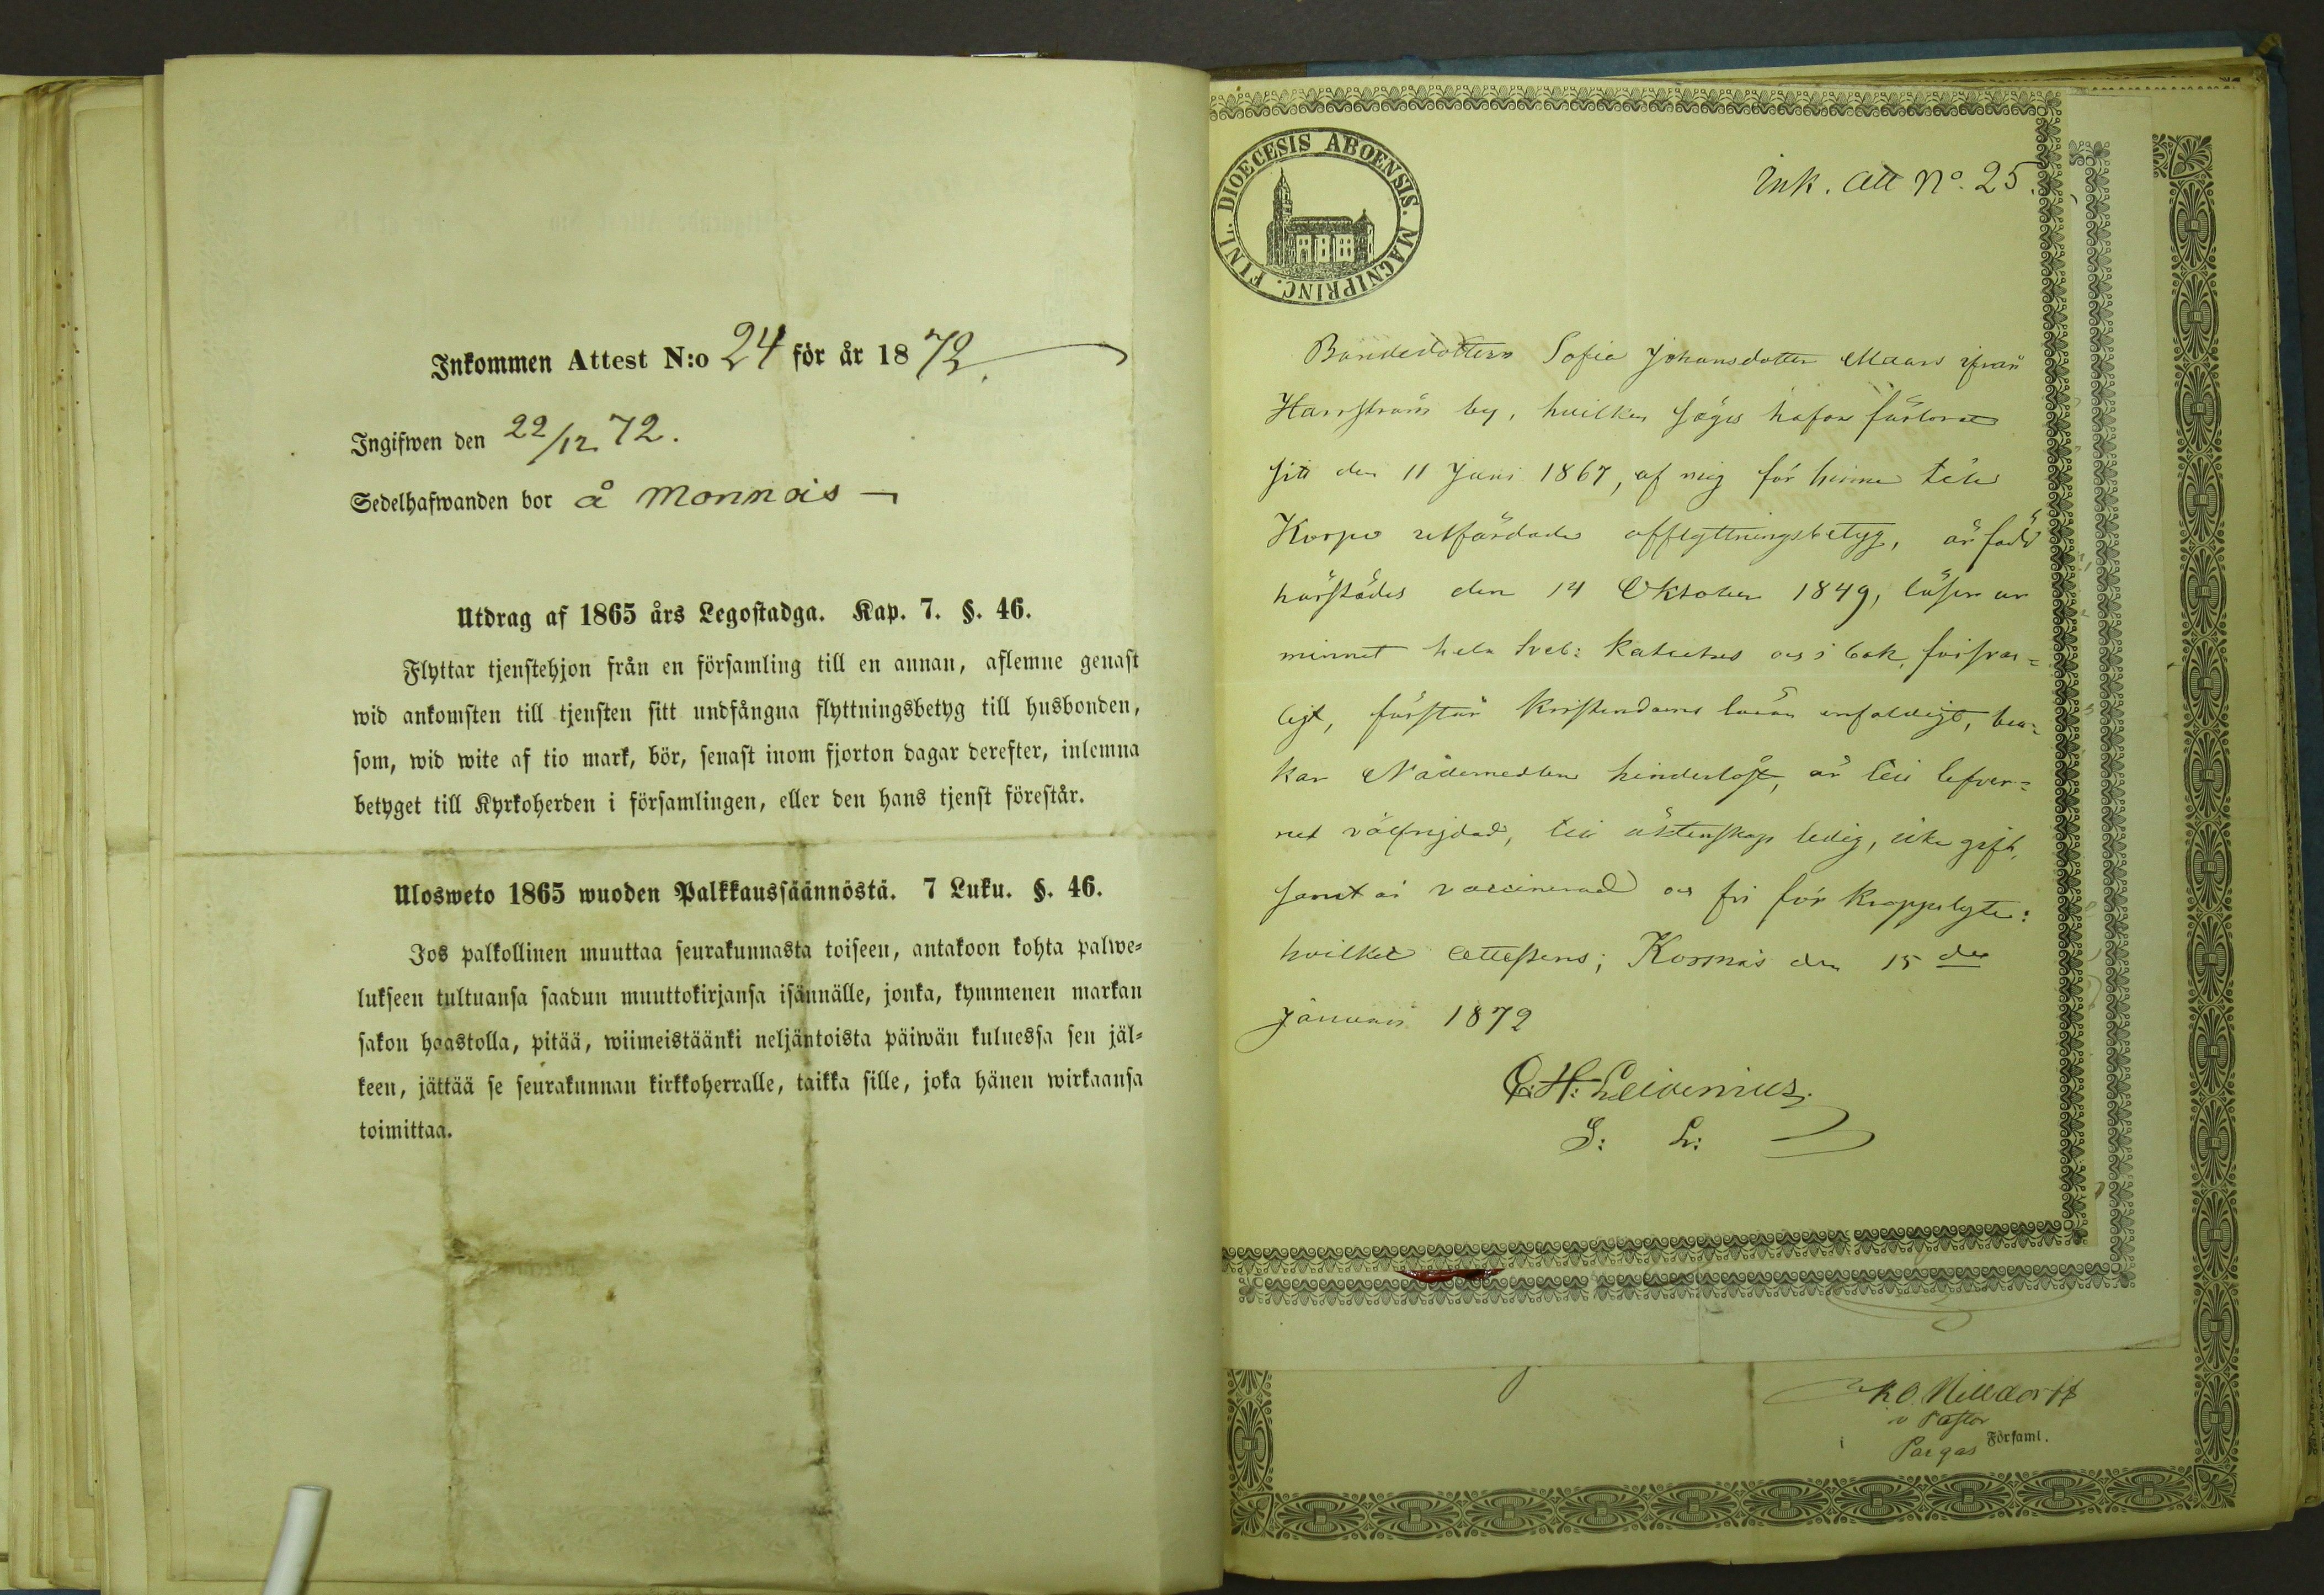 Inkommen Attest N:o 24 för år 1872.
Ingifwen den 22/12 72.
Sedelhafwanden bor å Monnois
Utdrag af 1865 års Legostadga. Kap. 7. §. 46.
Flyttar tjenstehjon från en församling till en annan, aflemne genast
wid ankomsten till tjensten sitt undfångna flyttningsbetyg till husbonden,
som, wid wite af tio mark, bör, senast inom fjorton dagar derefter, inlemna
betyget till Kyrkoherden i församlingen, eller den hans tjenst förestår.
Ulosweto 1865 wuoden Palkkaussäännöstä. 7 Luku. §. 46.
Jos palkollinen muuttaa seurakunnasta toiseen, antakoon kohta palwe=
lukseen tultuansa saadun muuttokirjansa isännälle, jonka, kymmenen markan
sakon haastolla, pitää, wiimeistäänki neljäntoista päiwän kuluessa sen jäl=
keen, jättää se seurakunnan kirkkoherralle, taikka sille, joka hänen wirkaansa
toimittaa.
FINL. DIOECESIS ABOENSIS. MAGNIPRINC.
Ink. Att No. 25.
Bondedottern Sofia Johansdotter Maars ifrån
Harrström by, hvilken säges hafva förlorat
sitt den 11 Juni 1867, af mig för henne till
Korpo utfärdade afflyttningsbetyg, är född
härstädes den 14 Oktober 1849, läser ur
minnet hela Sveb: Kateches och i bok försvar=
ligt, förstår Kristendoms läran enfaldigt, bru=
kar Nådemedlen hinderlöst, är till lefver=
net välfrejdad, till äktenskap ledig, icke gift,
samt är vaccinerad och fri för kroppslyte:
hvilket attesteras; Korsnäs den 15 de
Januari 1872
C:H: Leivenius.
S: L:
v Pastor
i Pargas Församl.